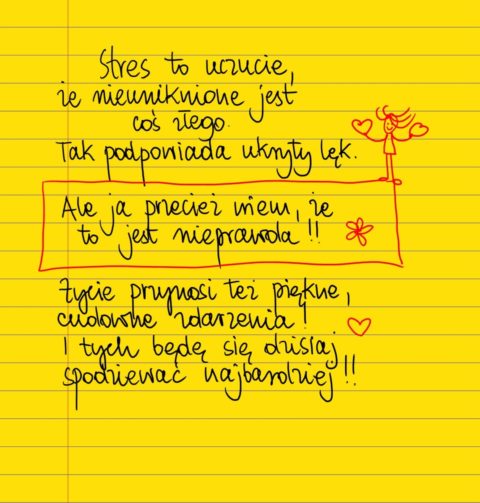 Stres to uczucie,
że nieuniknione jest
coś złego.
Tak podpowiada ukryty lęk.
Ale ja przecież wiem, że
to jest nieprawda!!
Życie przynosi też piękne,
cudowne zdarzenia!
I tych będę się dzisiaj
spodziewać najbardziej!!